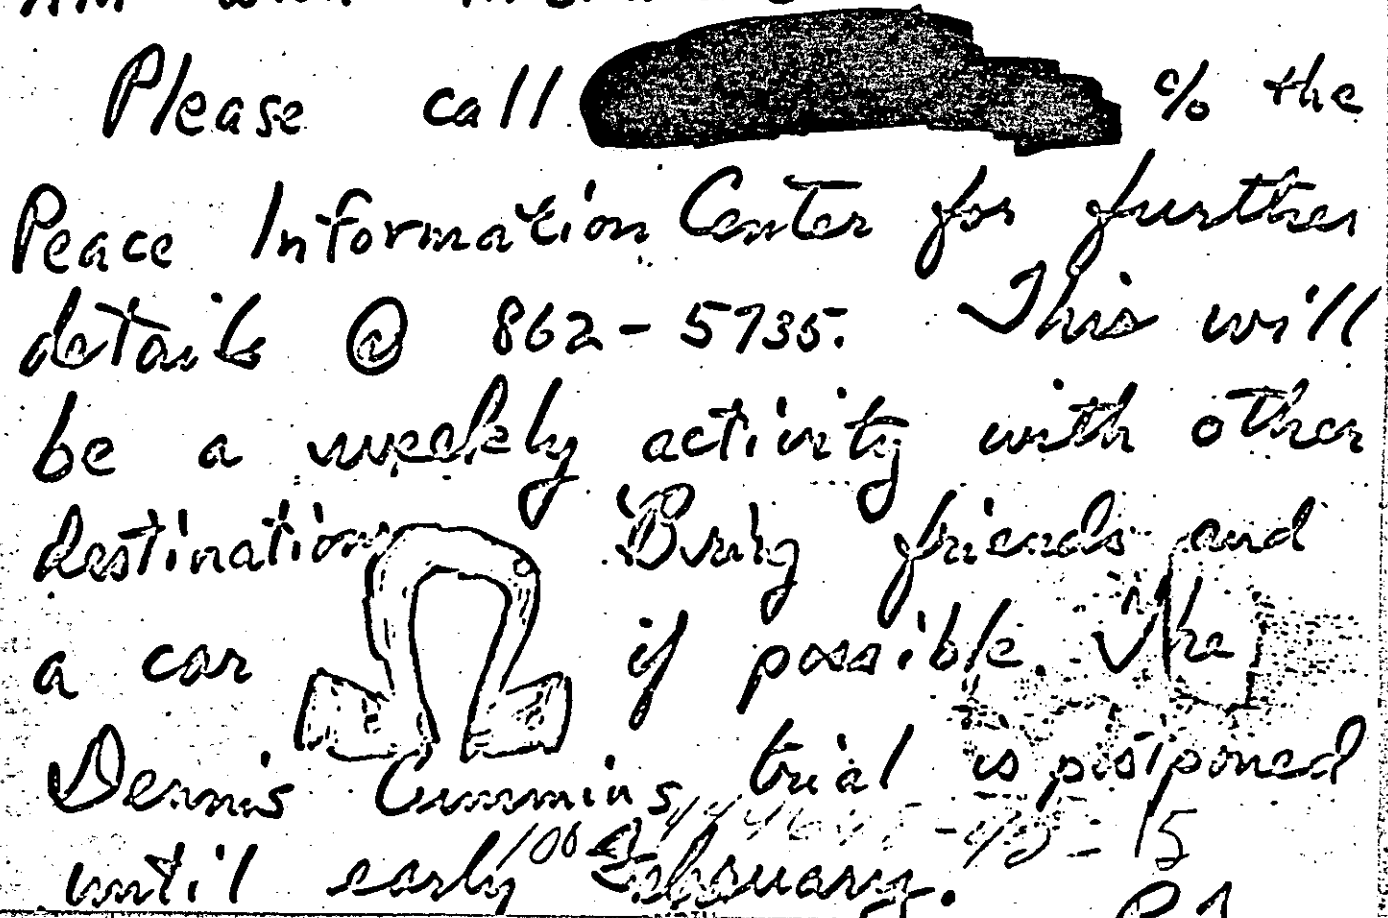 Please call % the
Peace Information Center for further
details @ 862-5735. This will
be a weekly activity with other
destinations Bring friends and
a car if possible. The
Dennis Cummins trial is postponed
until early February.